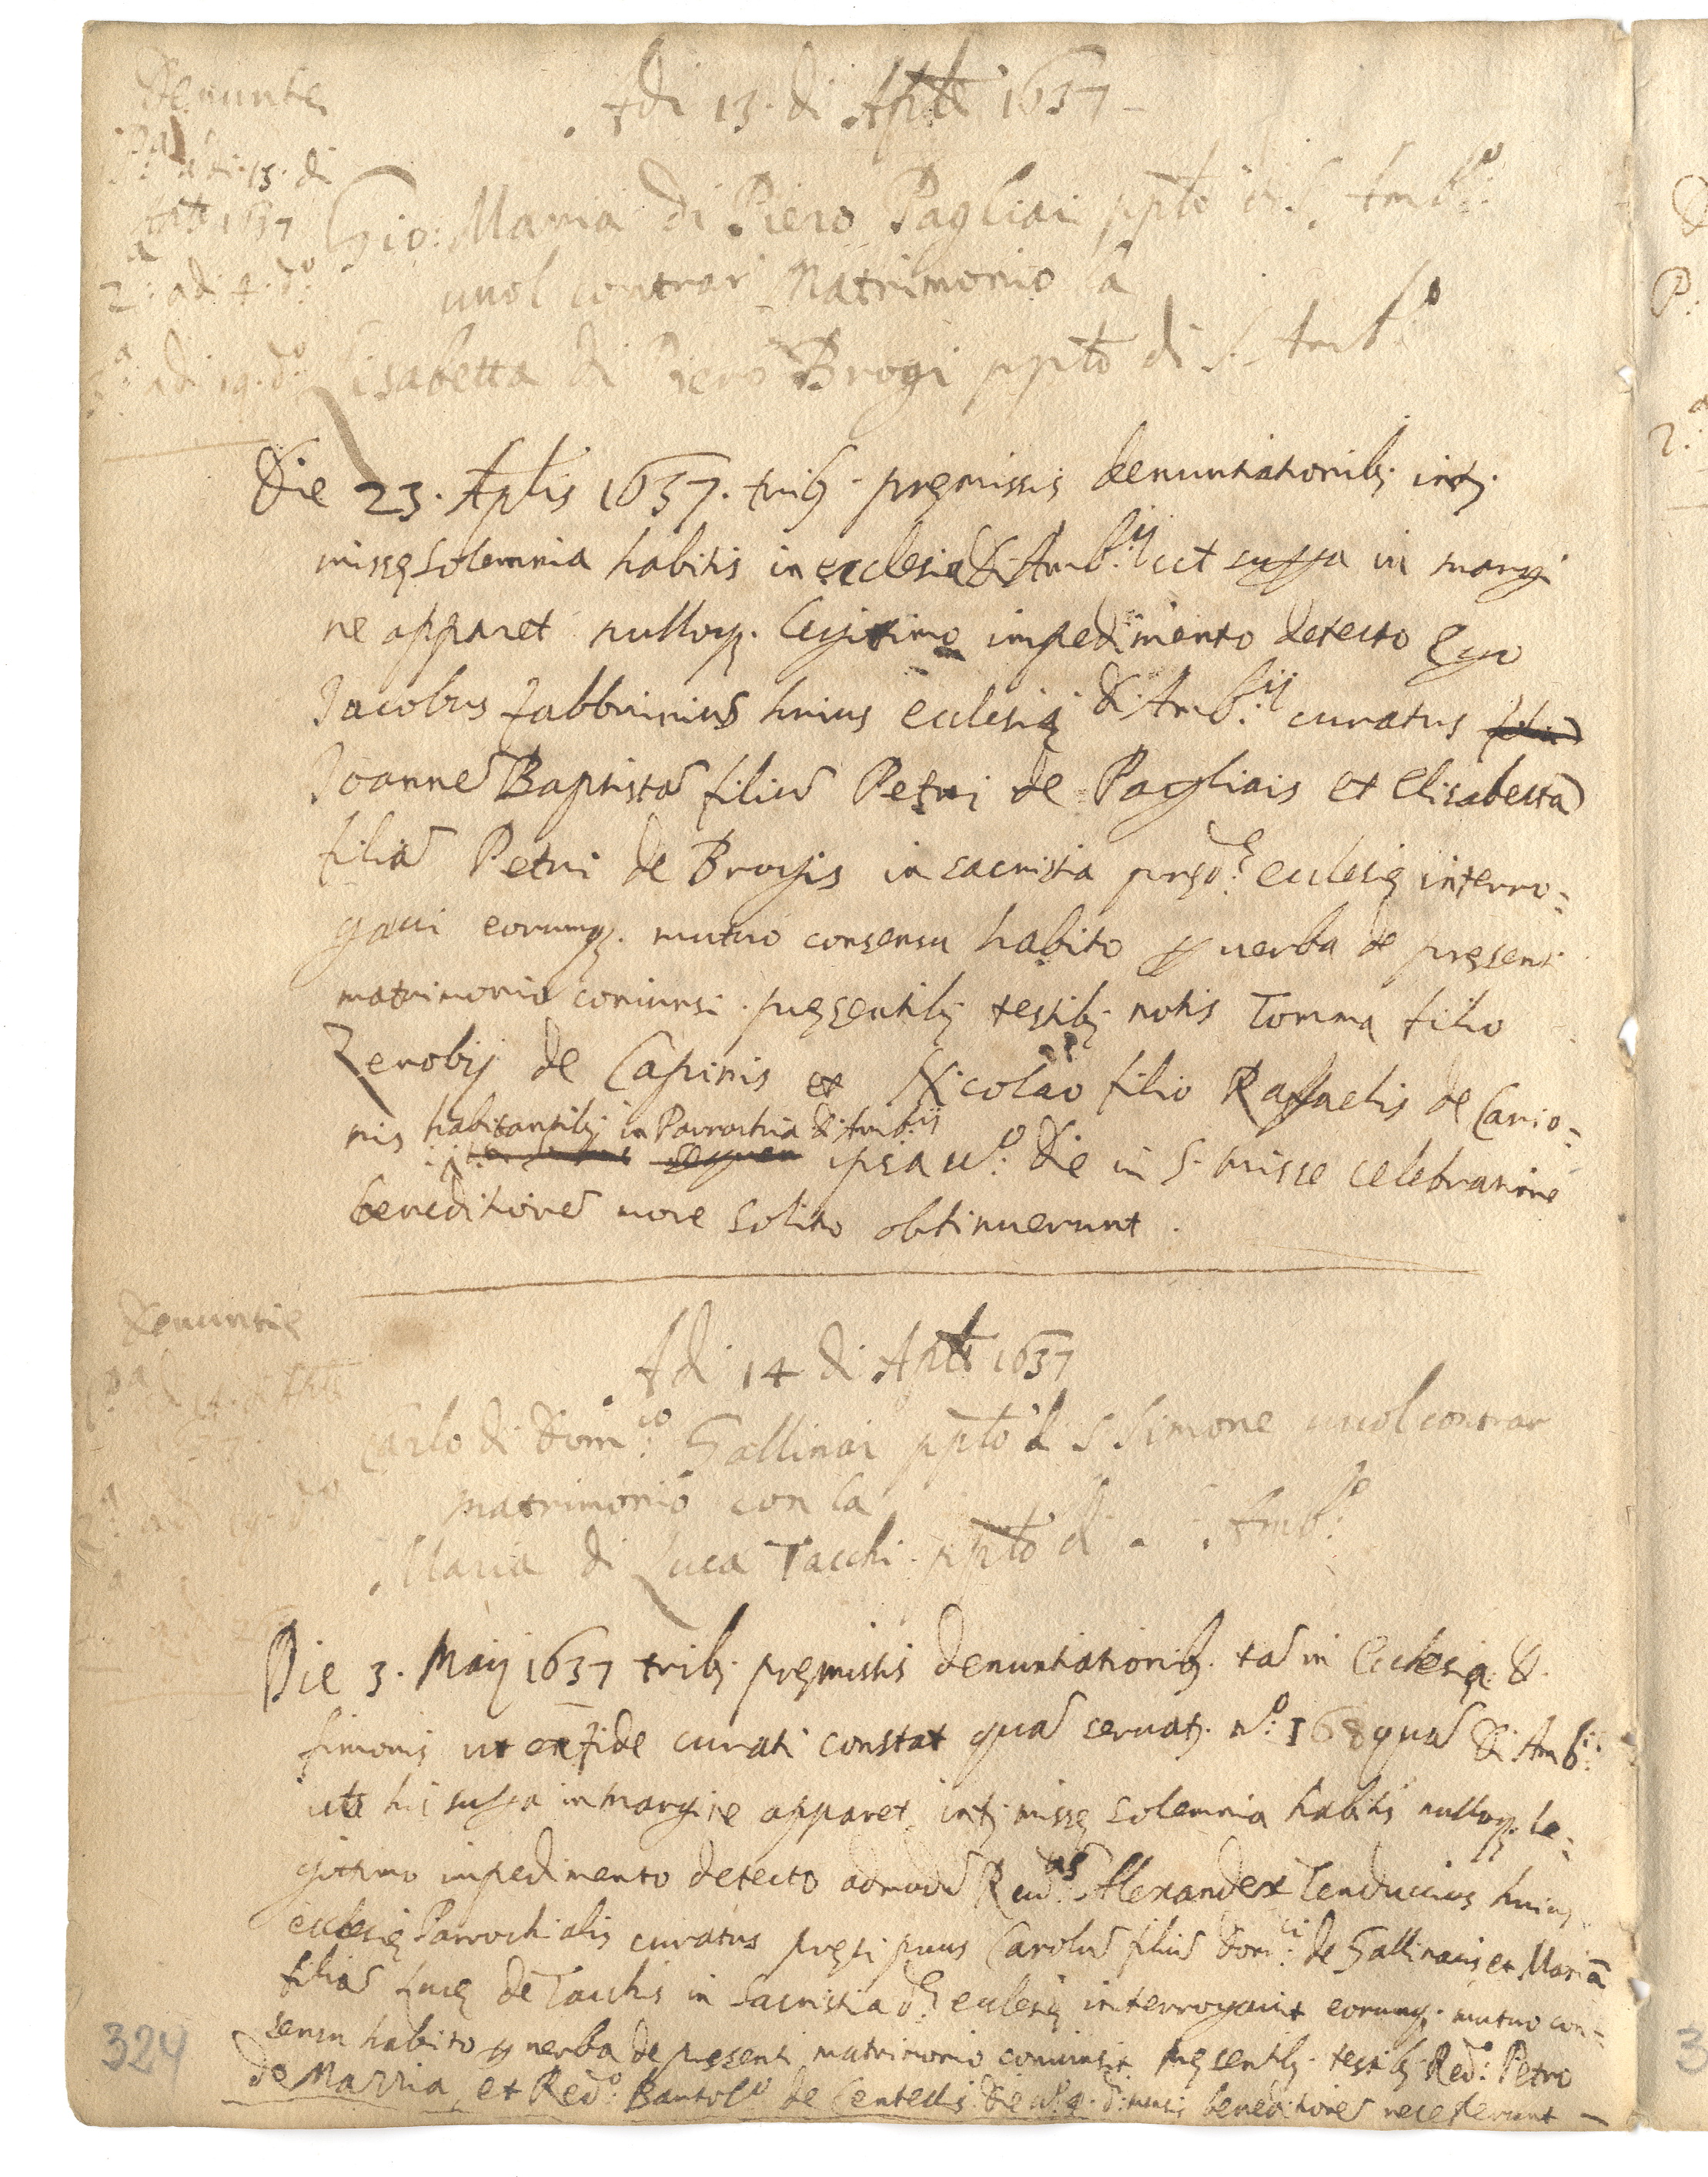 Adi 13. di Aple 1637
Denuntie
Pa adi 13. di
Aple 1637
2a: adi d.o
3a: adi 19. d.o
Gio: Maria di Piero Pagliai ppto di S. Amb.o
uuol contrar Matrimonio la
Lisabetta di Piero Brogi ppto di S. Amb.o
Die 23. Aplis 1637. trib. premissis denuntiationib; int;
misse solemnia habitis in ecclesia S. Amb.ij ut supra in margi
ne apparet nulloq; legitimo impedimento detecto Ego
Jacobus Fabbrinius huius ecclesie S. Amb.ij curatus
Joanne Baptista filiu Petri de Pagliais et Elisabetta
filia Petri de Brogis in sacristia pred.e ecclesie interro=
gaui eorumq; mutuo consensu habito p uerba de presenti
matrimonio coniunsi. presentib; testib; notis Tomma filio
Zenobij de Capinis et Nicolao filio Raffaelis de Cario=
nis habitantib; in Parrochia S. Amb.ij
ipsa u.o die in S. misse celebratione
beneditione more solito obtinuerunt.
Denuntie
Adi 14 di Aple 1637
Pa 14. di Aple
1637
2a: adi 19. d.o
Carlo di Dom.co Gallinai ppto di S. Simone uuol contrar
matrimonio con la
Maria di Luca Tacchi ppto di S. Amb.o
Die 3. Maij 1637 trib; premissis denuntiationib. ta in Ecclesia S.
Simonis ut ex fide curati constat qua seruat; n.o: 168 qua S. Amb.ij
ut hi supra in margine apparet int; misse solemnia habitis nulloq; le=
gittimo impedimento detecto admodu Reud.us Alexander Tenduccius huius
ecclesie Parrochialis curatus Carolu filiu Dom.ci de Gallinais et Maria
filia Luce de Tacchis in Sacristia d.e ecclesie interrogauit eorumq; mutuo con=
sensu habito p uerba de presenti matrimonio coniunsit presentib; testib; Red.o: Petro
de Marzia et Red.o Bartol.o de Centellis die benedictione receperunt
324